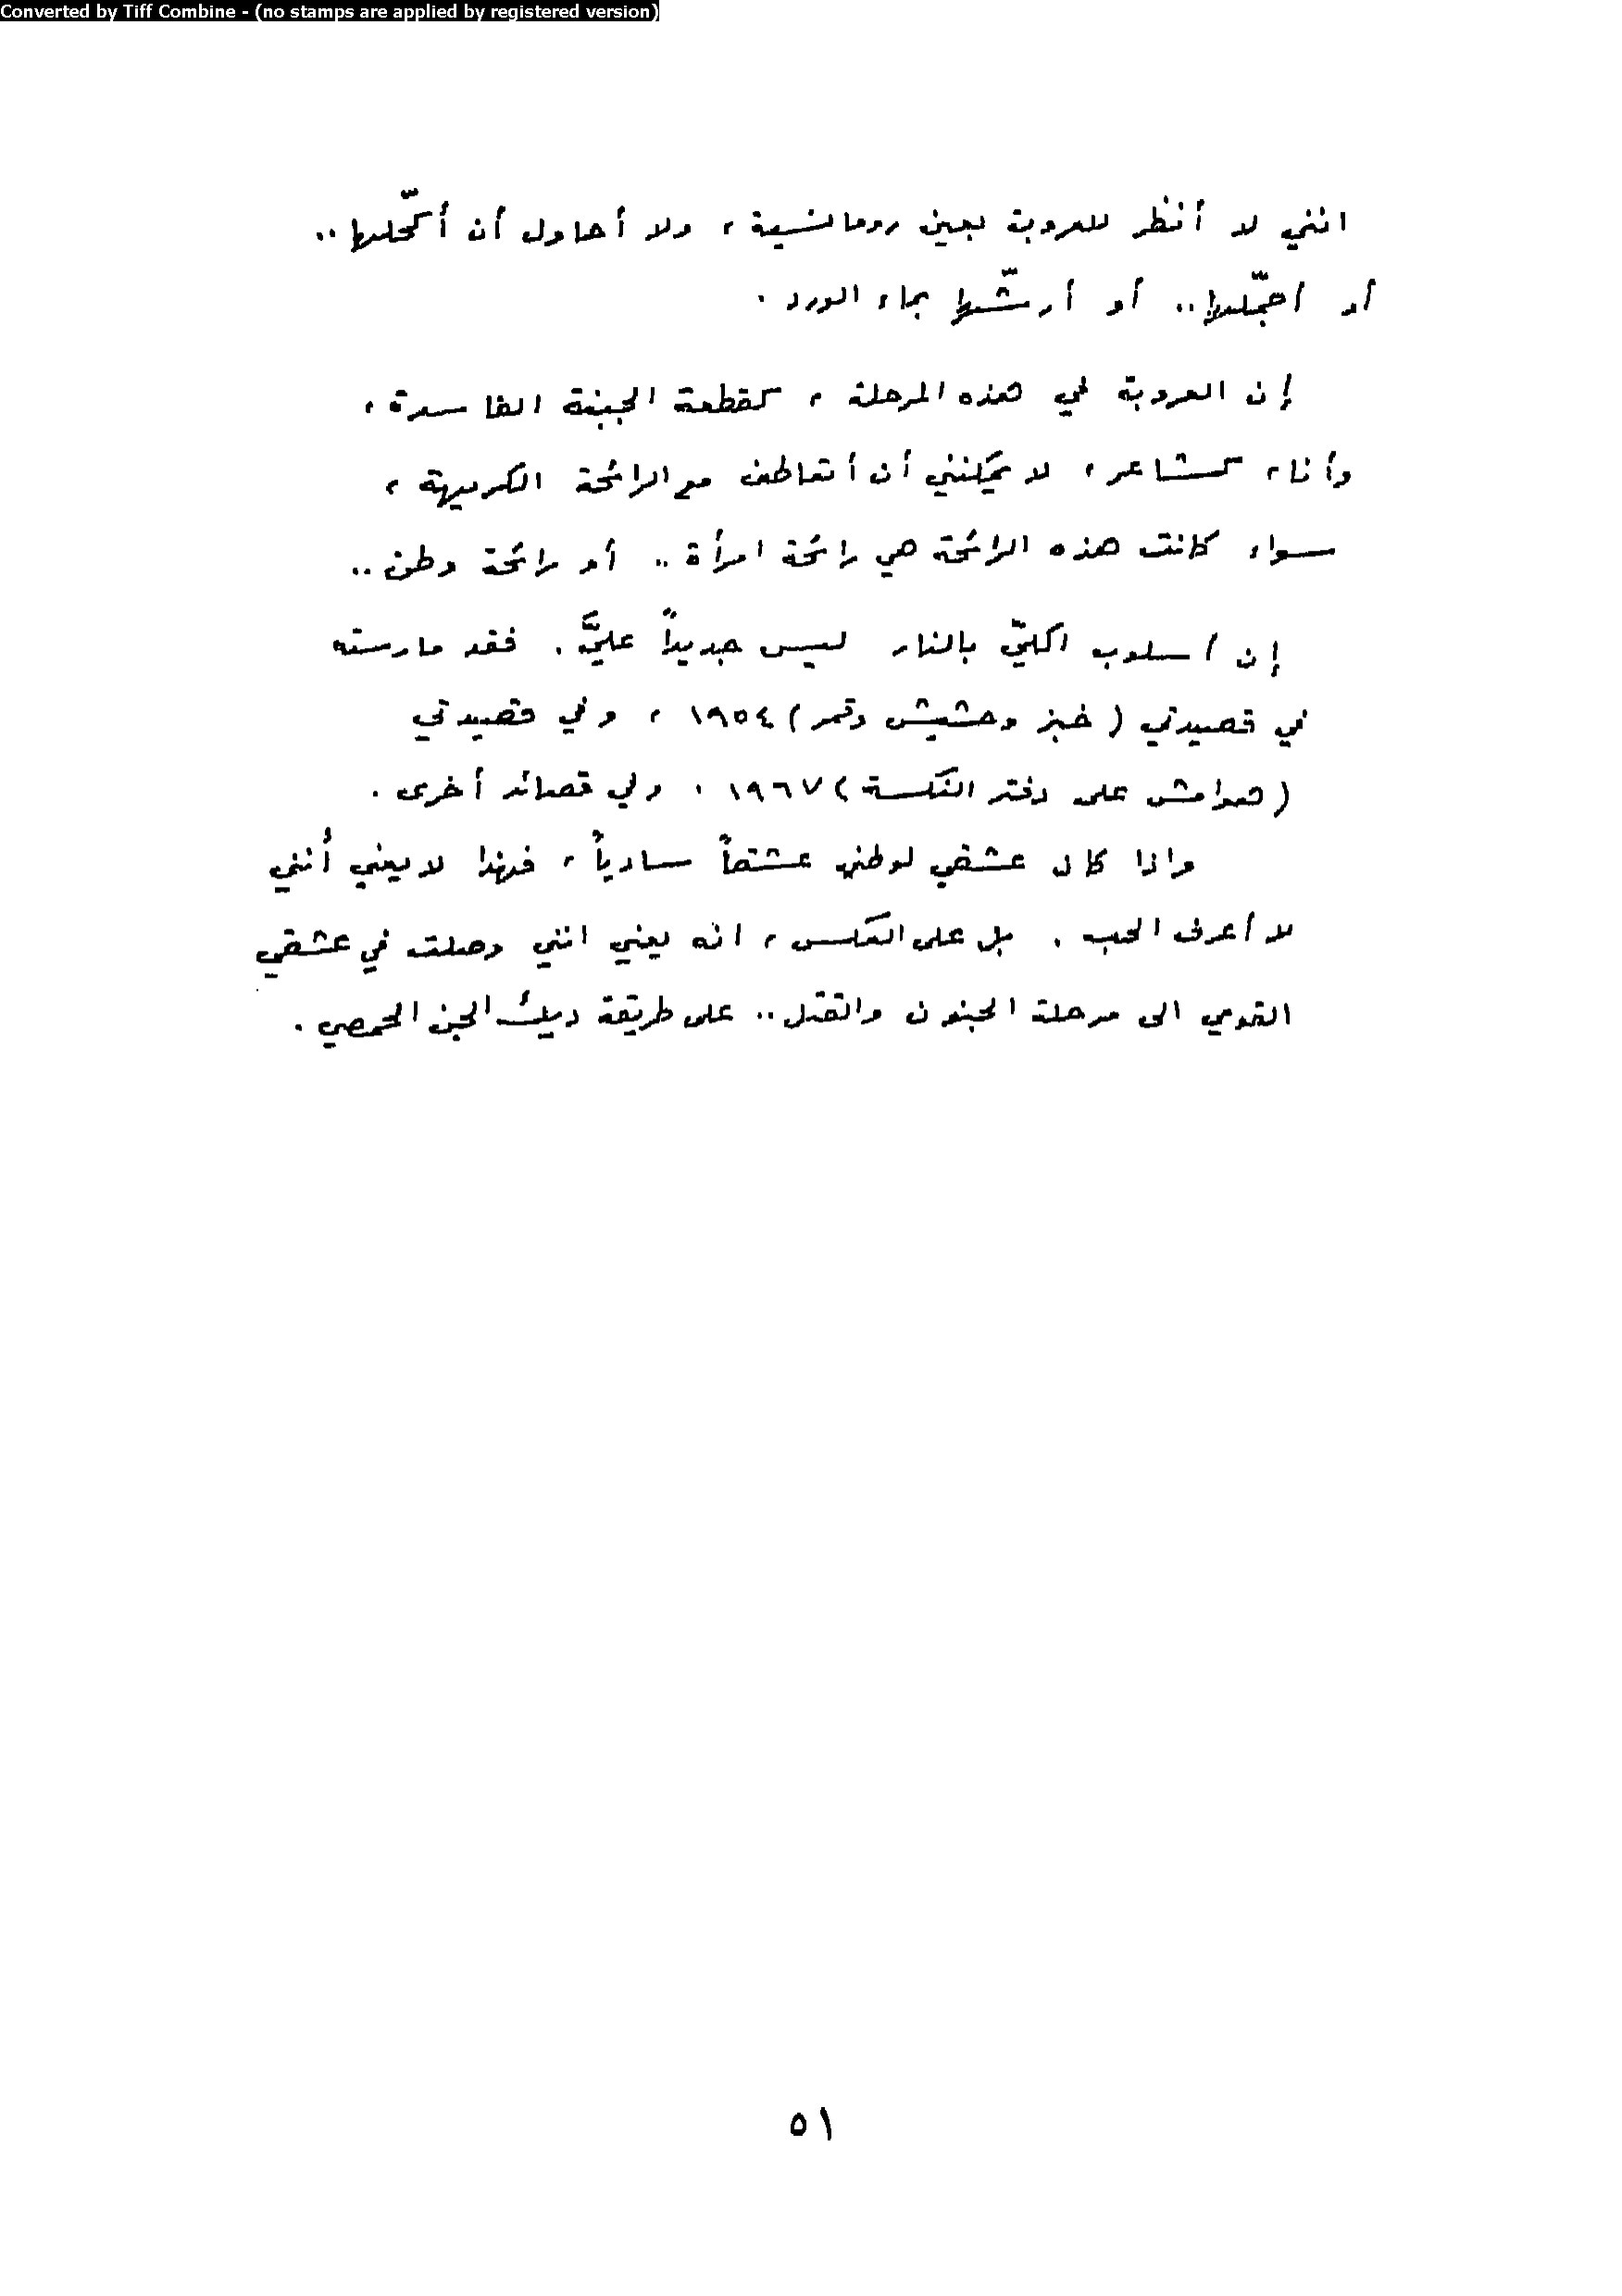 Converted by Tiff Combine - (no stamps are applied by registered version)
انني لا أنظر للعروبة بعين رومانسية ، ولا أحاول أن أكحّلها ..
أو أجمّلها .. أو أرشّها بماء الورد .
إن العروبة في هذه المرحلة ، كقطعة الجبنة الفاسدة ،
وأنا ، كشاعر ، لا يمكنني أن أتعاطف مع الرائحة الكريهة ،
سواء كانت هذه الرائحة هي رائحة امرأة .. أو رائحة وطن ..
إن أسلوب الكيّ بالنار ليس جديداً عليَّ . فقد مارسته
في قصيدتي ( خبز وحشيش وقمر ) ١٩٥٤ ، وفي قصيدتي
( هوامش على دفتر النكسة ) ١٩٦٧ ، وفي قصائد أخرى .
واذا كان عشقي لوطني عشقاً سادياً ، فهذا لا يعني أنني
لا أعرف الحب . بل على العكس ، انه يعني انني وصلت في عشقي
القومي الى مرحلة الجنون والقتل .. على طريقة ديك الجن الحمصي .
٥١